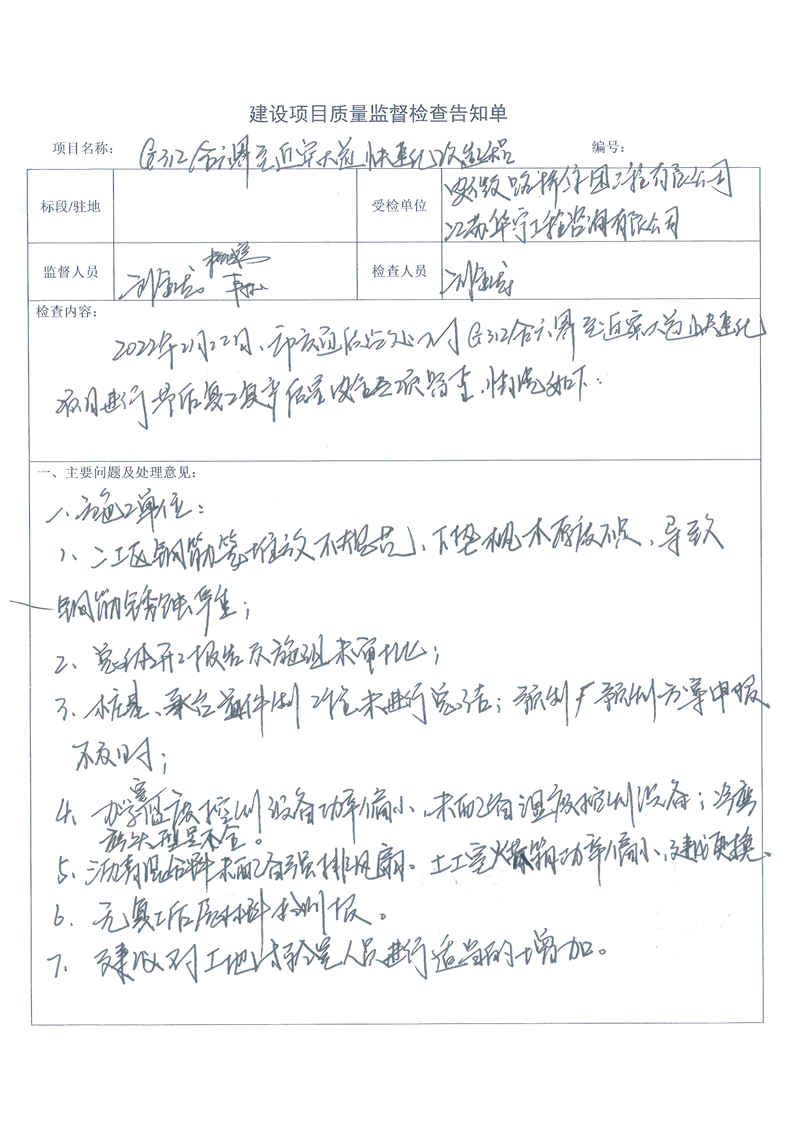 建设项目质量监督检查告知单
项目名称： G312合六界至近家大道快速化改造工程
编号：
标段/驻地
受检单位
路桥集团工程有限公司
江苏华宁工程咨询有限公司
监督人员
检查人员
检查内容：
2022年2月22日、对G312合六界至近家大道快速化
项目进行节后复工复产质量安全专项督查，情况如下：
一、主要问题及处理意见：
一、施工单位：
1、二工区钢筋笼堆放不规范，下垫枕木厚度不足，导致
钢筋锈蚀严重；
2、总体开工报告及施组未审批；
3、桩基、承台首件制 未进行总结；预制厂预制方案申报
不及时；
4、力学室温度控制设备功率偏小，未配备温度控制设备；冷弯
型号不全。
5、沥青混合料未配备强排风扇。土工室烘箱功率偏小，建议更换。
6、无复工后原材料检测报。
7、建议对工地试验室人员进行适当的增加。